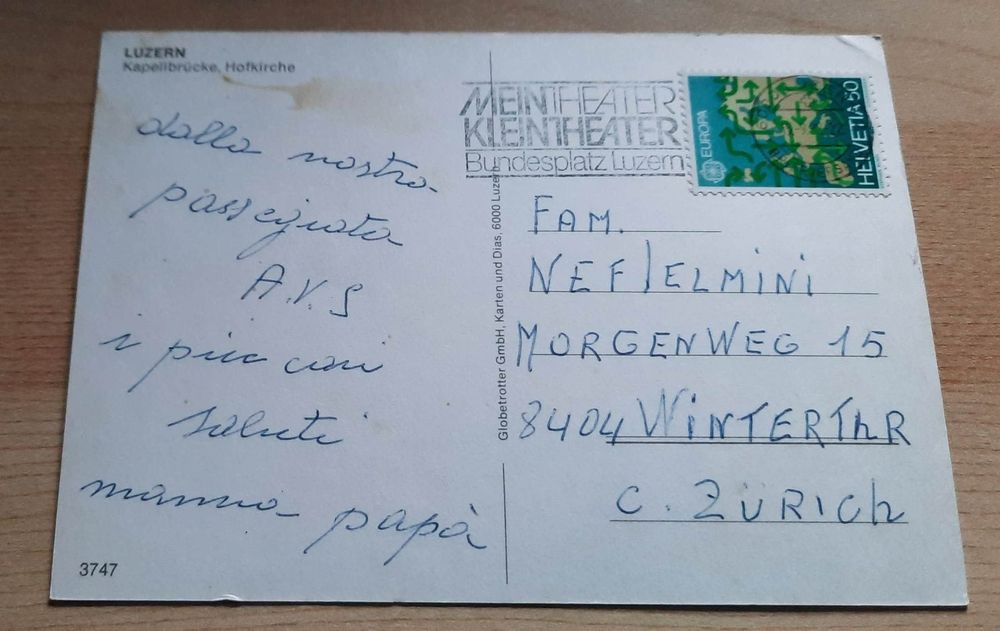 LUZERN
Kapellbrücke, Hofkirche
dalla nostra
passegiata
A.V.S
i piu cari
saluti
mamma papà
3747
Globetrotter GmbH, Karten und Dias, 6000 Luzern
MEIN THEATER
KLEINTHEATER
Bundesplatz Luzern
EUROPA
HELVETIA 50
FAM.
NEF/ELMINI
MORGENWEG 15
8404 WINTERTHR
C. ZÜRICH